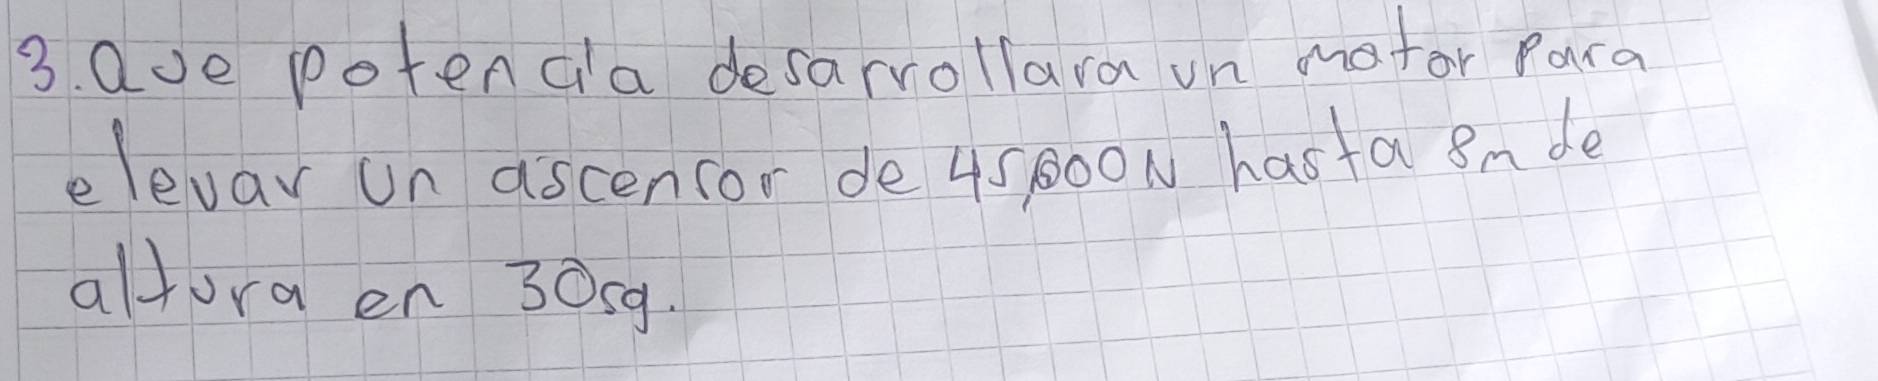 3. Que potencia desarrollara un motor para
elevar un ascensor de 45,000N hasta 8m de
altura en 30sg.